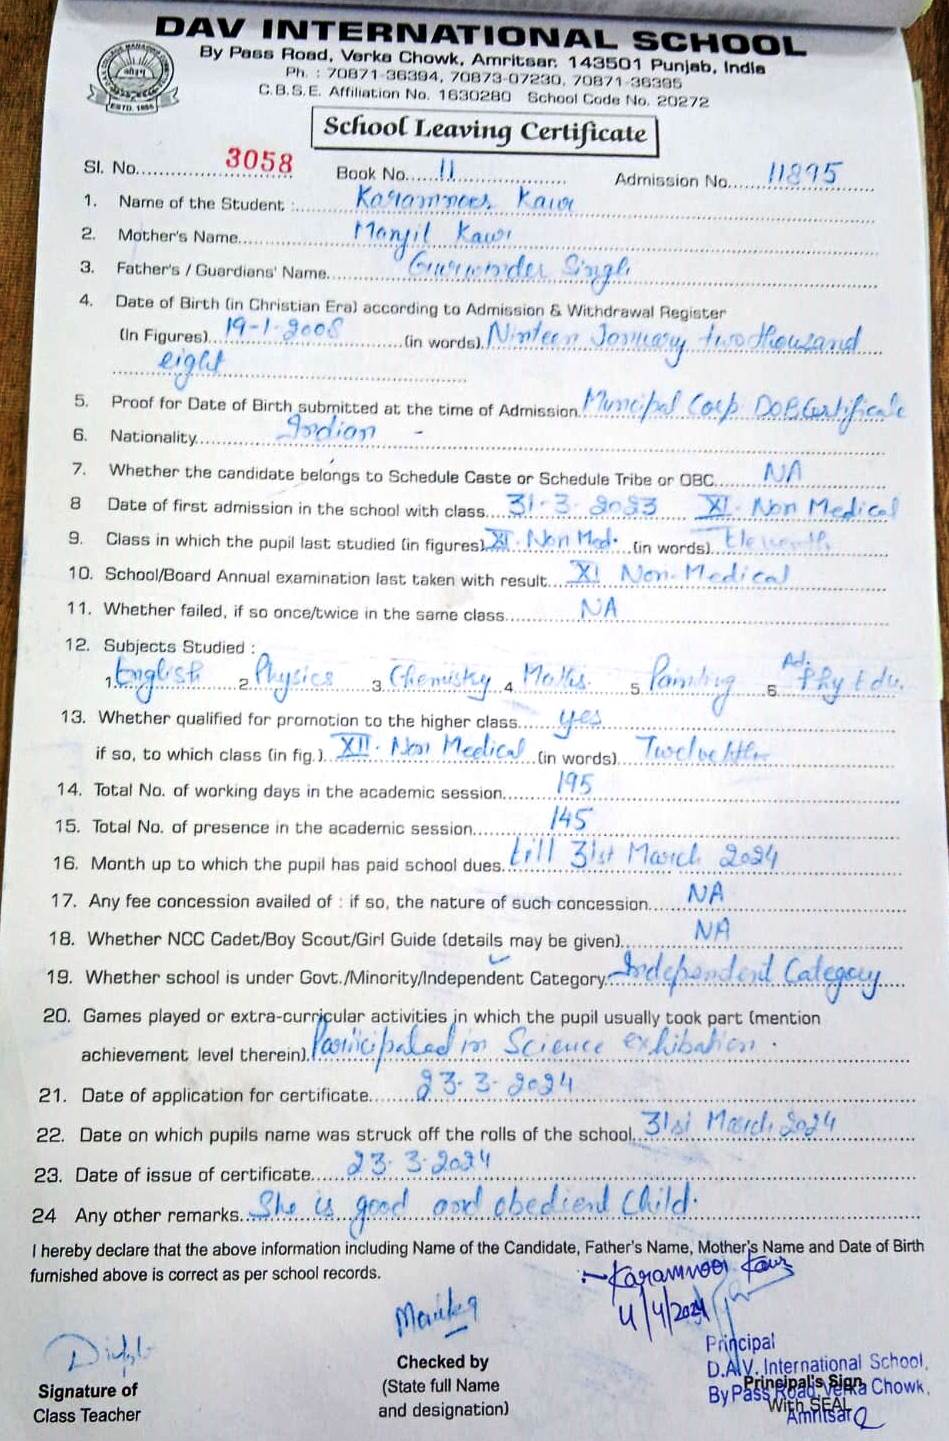 DAV INTERNATIONAL SCHOOL
By Pass Road, Verka Chowk, Amritsar. 143501 Punjab, India
Ph. : 70871-36394, 70873-07230, 70871-36395
C.B.S.E. Affiliation No. 1630280 School Code No. 20272
ESTD. 1886
School Leaving Certificate
Sl. No. 3058 Book No. 11 Admission No. 11895
1. Name of the Student : Karamnoor Kaur
2. Mother's Name Manjit Kaur
3. Father's / Guardians' Name Gurwinder Singh
4. Date of Birth (in Christian Era) according to Admission & Withdrawal Register
(In Figures) 19-1-2008 (in words) Ninteen January two thousand
eight
5. Proof for Date of Birth submitted at the time of Admission Muncipal Corp DOB Certificate
6. Nationality Indian -
7. Whether the candidate belongs to Schedule Caste or Schedule Tribe or OBC NA
8 Date of first admission in the school with class 31-3-2023 XI. Non Medical
9. Class in which the pupil last studied (in figures) XI. Non Med. (in words) Eleventh
10. School/Board Annual examination last taken with result XI Non-Medical
11. Whether failed, if so once/twice in the same class NA
12. Subjects Studied :
1. English 2. Physics 3. Chemistry 4. Maths. 5. Painting 6. Ad. Phy Edu.
13. Whether qualified for promotion to the higher class yes
if so, to which class (in fig.) XII. Non Medical (in words)
14. Total No. of working days in the academic session 195
15. Total No. of presence in the academic session 145
16. Month up to which the pupil has paid school dues till 31st March 2024
17. Any fee concession availed of : if so, the nature of such concession NA
18. Whether NCC Cadet/Boy Scout/Girl Guide (details may be given) NA
19. Whether school is under Govt./Minority/Independent Category Independent Category
20. Games played or extra-curricular activities in which the pupil usually took part (mention
achievement level therein) Participated in Science exhibation.
21. Date of application for certificate 23-3-2024
22. Date on which pupils name was struck off the rolls of the school 31st March 2024
23. Date of issue of certificate 23-3-2024
24 Any other remarks She is good and obedient Child.
I hereby declare that the above information including Name of the Candidate, Father's Name, Mother's Name and Date of Birth
furnished above is correct as per school records.
Karamnoor Kaur
4/4/2024
Signature of
Class Teacher
Checked by
(State full Name
and designation)
Principal
D.A.V. International School,
Principal's Sign
By Pass Road Verka Chowk,
With SEAL
Amritsar